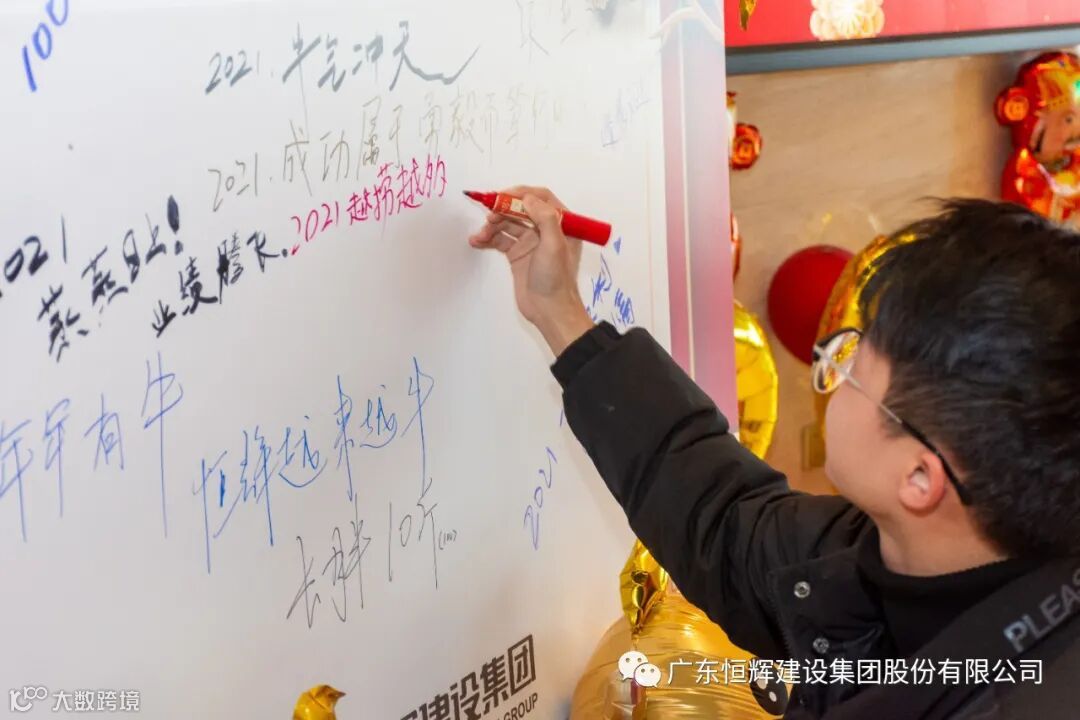 100
2021. 牛气冲天
2021. 成功属于勇毅而笃行
2021越捞越多
2021
蒸蒸日上!
业绩腾飞.
年年有牛
恒辉越来越牛
长胖10斤
2021
建设集团
GROUP
PLEAS
广东恒辉建设集团股份有限公司
大数跨境